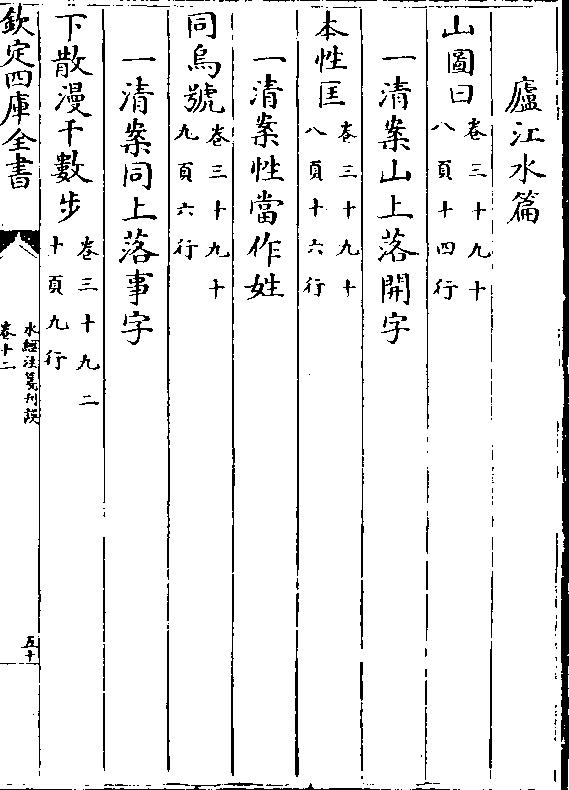 廬江水篇
山圖曰卷三十九十八頁十四行
一清案山上落開字
本性匡卷三十九十八頁十六行
一清案性當作姓
同烏號卷三十九十九頁六行
一清案同上落事字
下散漫千數步卷三十九二十頁九行
欽定四庫全書
水經注箋刋誤
卷十二
五十